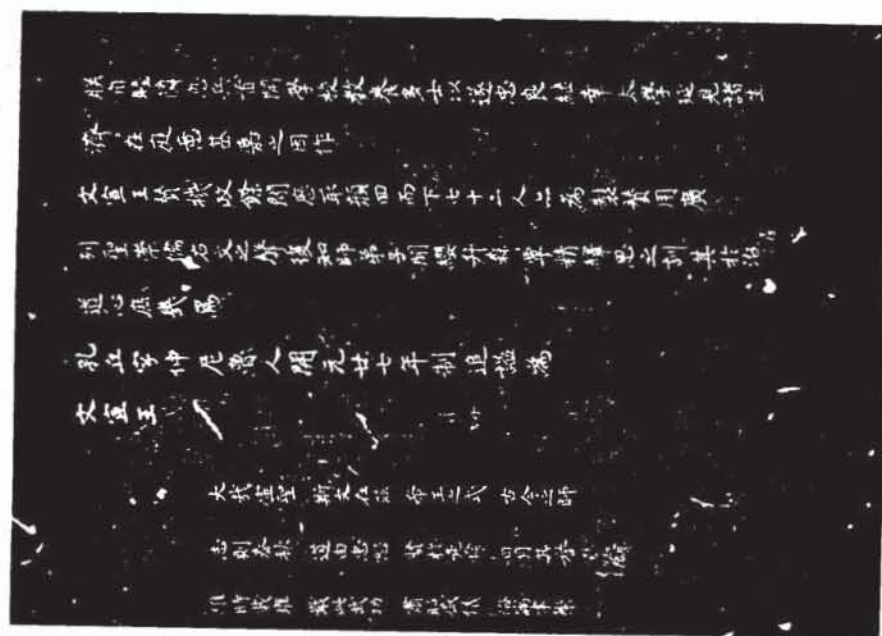 朕自睦鄰息兵首開學校教養多士以遂忠良繼幸太學延見諸生
濟濟在庭意甚嘉之因作
文宣王贊機政餘閒歷取顏回而下七十二人亦為製贊用廣
列聖崇儒右文之聲復知師弟子間纓弁森森覃精繹思之訓其於治
道心庶幾焉
孔丘字仲尼魯人開元廿七年制追謚為
文宣王
大哉宣聖 斯文在茲 帝王之式 古今之師
志則春秋 道由忠恕 賢於堯舜 日月其譽
維時載雍 戢此武功 肅昭盛儀 海宇聿崇